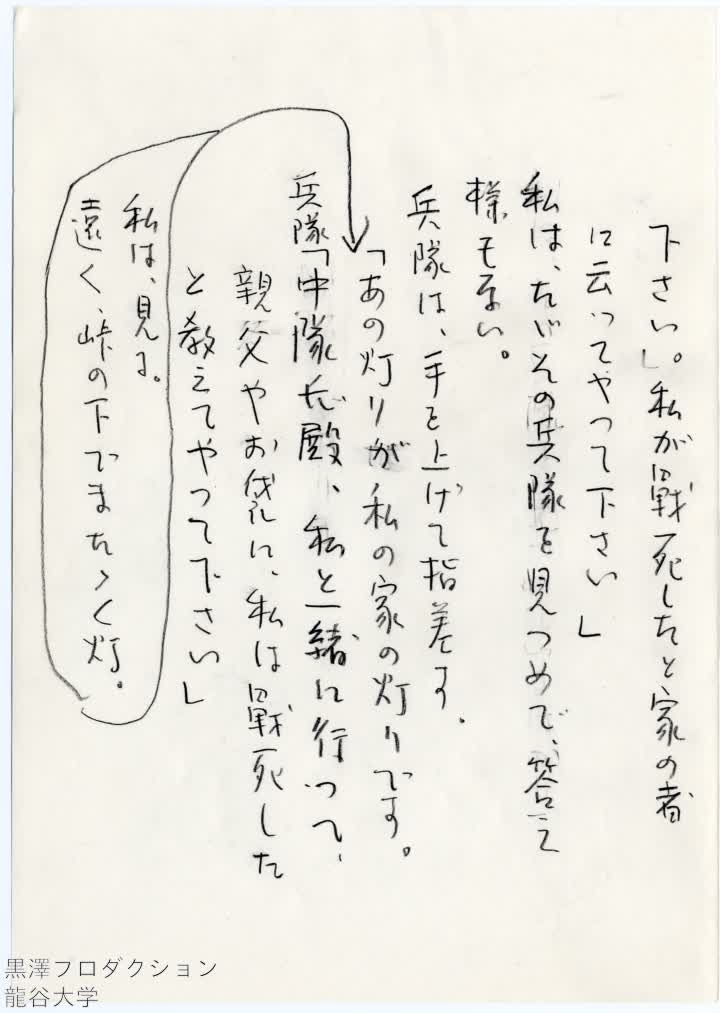 下さい」。私が戦死したと家の者
に云ってやって下さい」
私は、たゞその兵隊を見つめて、答え
様もない。
兵隊は、手を上げて指差す。
「あの灯りが私の家の灯りです。
兵隊「中隊長殿、私と一緒に行って、
親父やお袋に、私は戦死した
と教えてやって下さい」
私は、見る。
遠く、峠の下でまたゝく灯。
黒澤プロダクション
龍谷大学